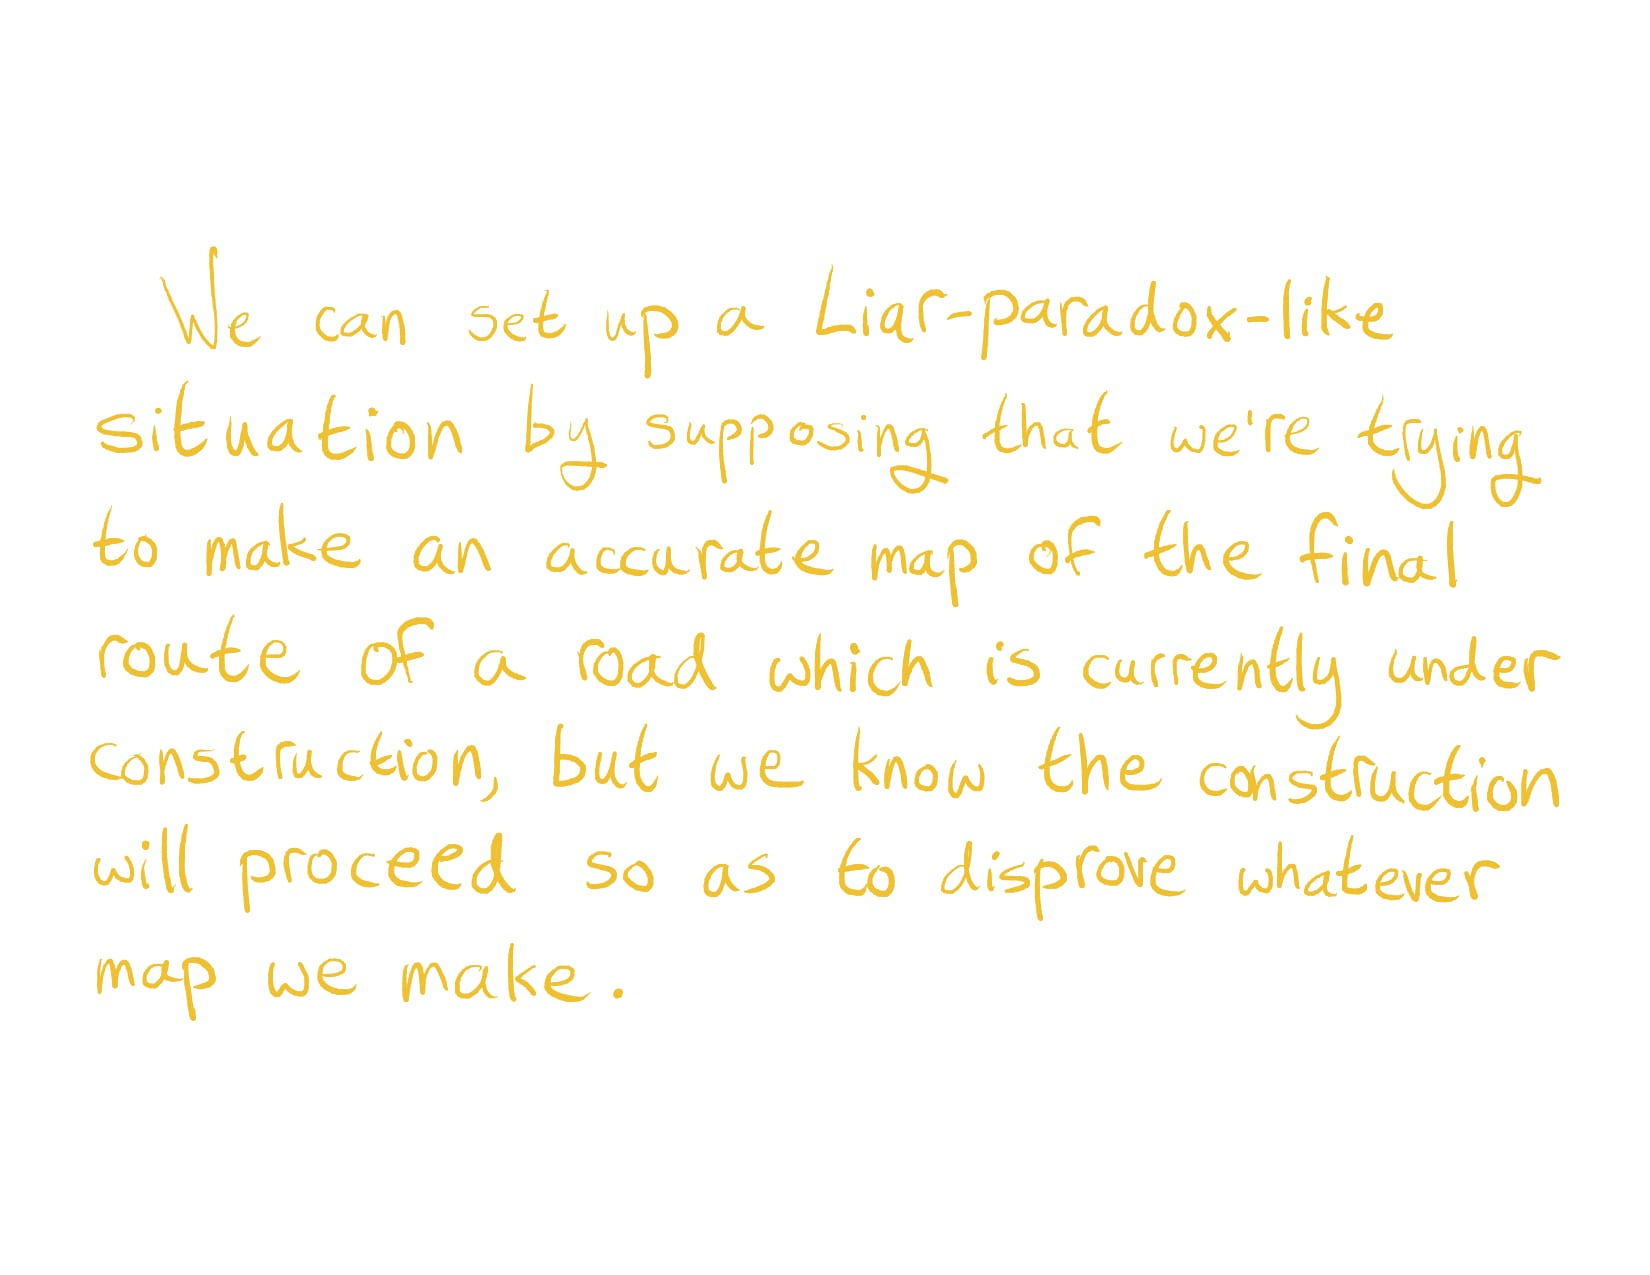 We can set up a Liar-paradox-like
situation by supposing that we're trying
to make an accurate map of the final
route of a road which is currently under
construction, but we know the construction
will proceed so as to disprove whatever
map we make.